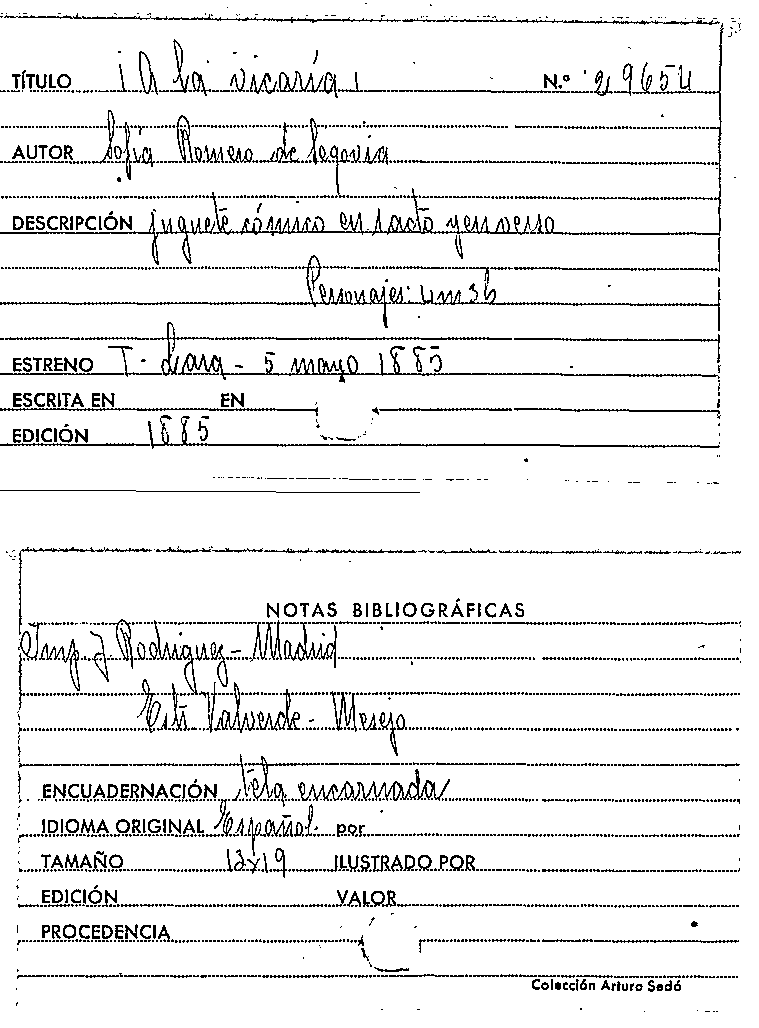 TÍTULO ¡A la vicaría! N.º 29654
AUTOR Sofía Romero de Segovia
DESCRIPCIÓN juguete cómico en 1 acto y en verso
Personajes: 4m 3h
ESTRENO T. Lara - 5 mayo 1885
ESCRITA EN EN
EDICIÓN 1885
NOTAS BIBLIOGRÁFICAS
Imp. J. Rodriguez - Madrid
Valverde - Mesejo
ENCUADERNACIÓN tela encarnada
IDIOMA ORIGINAL Español. por
TAMAÑO 13x19 ILUSTRADO POR
EDICIÓN VALOR
PROCEDENCIA
Colección Arturo Sedó